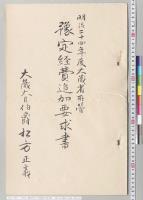 明治三十四年度大蔵省所管
豫定経費追加要求書
大蔵大臣伯爵松方正義